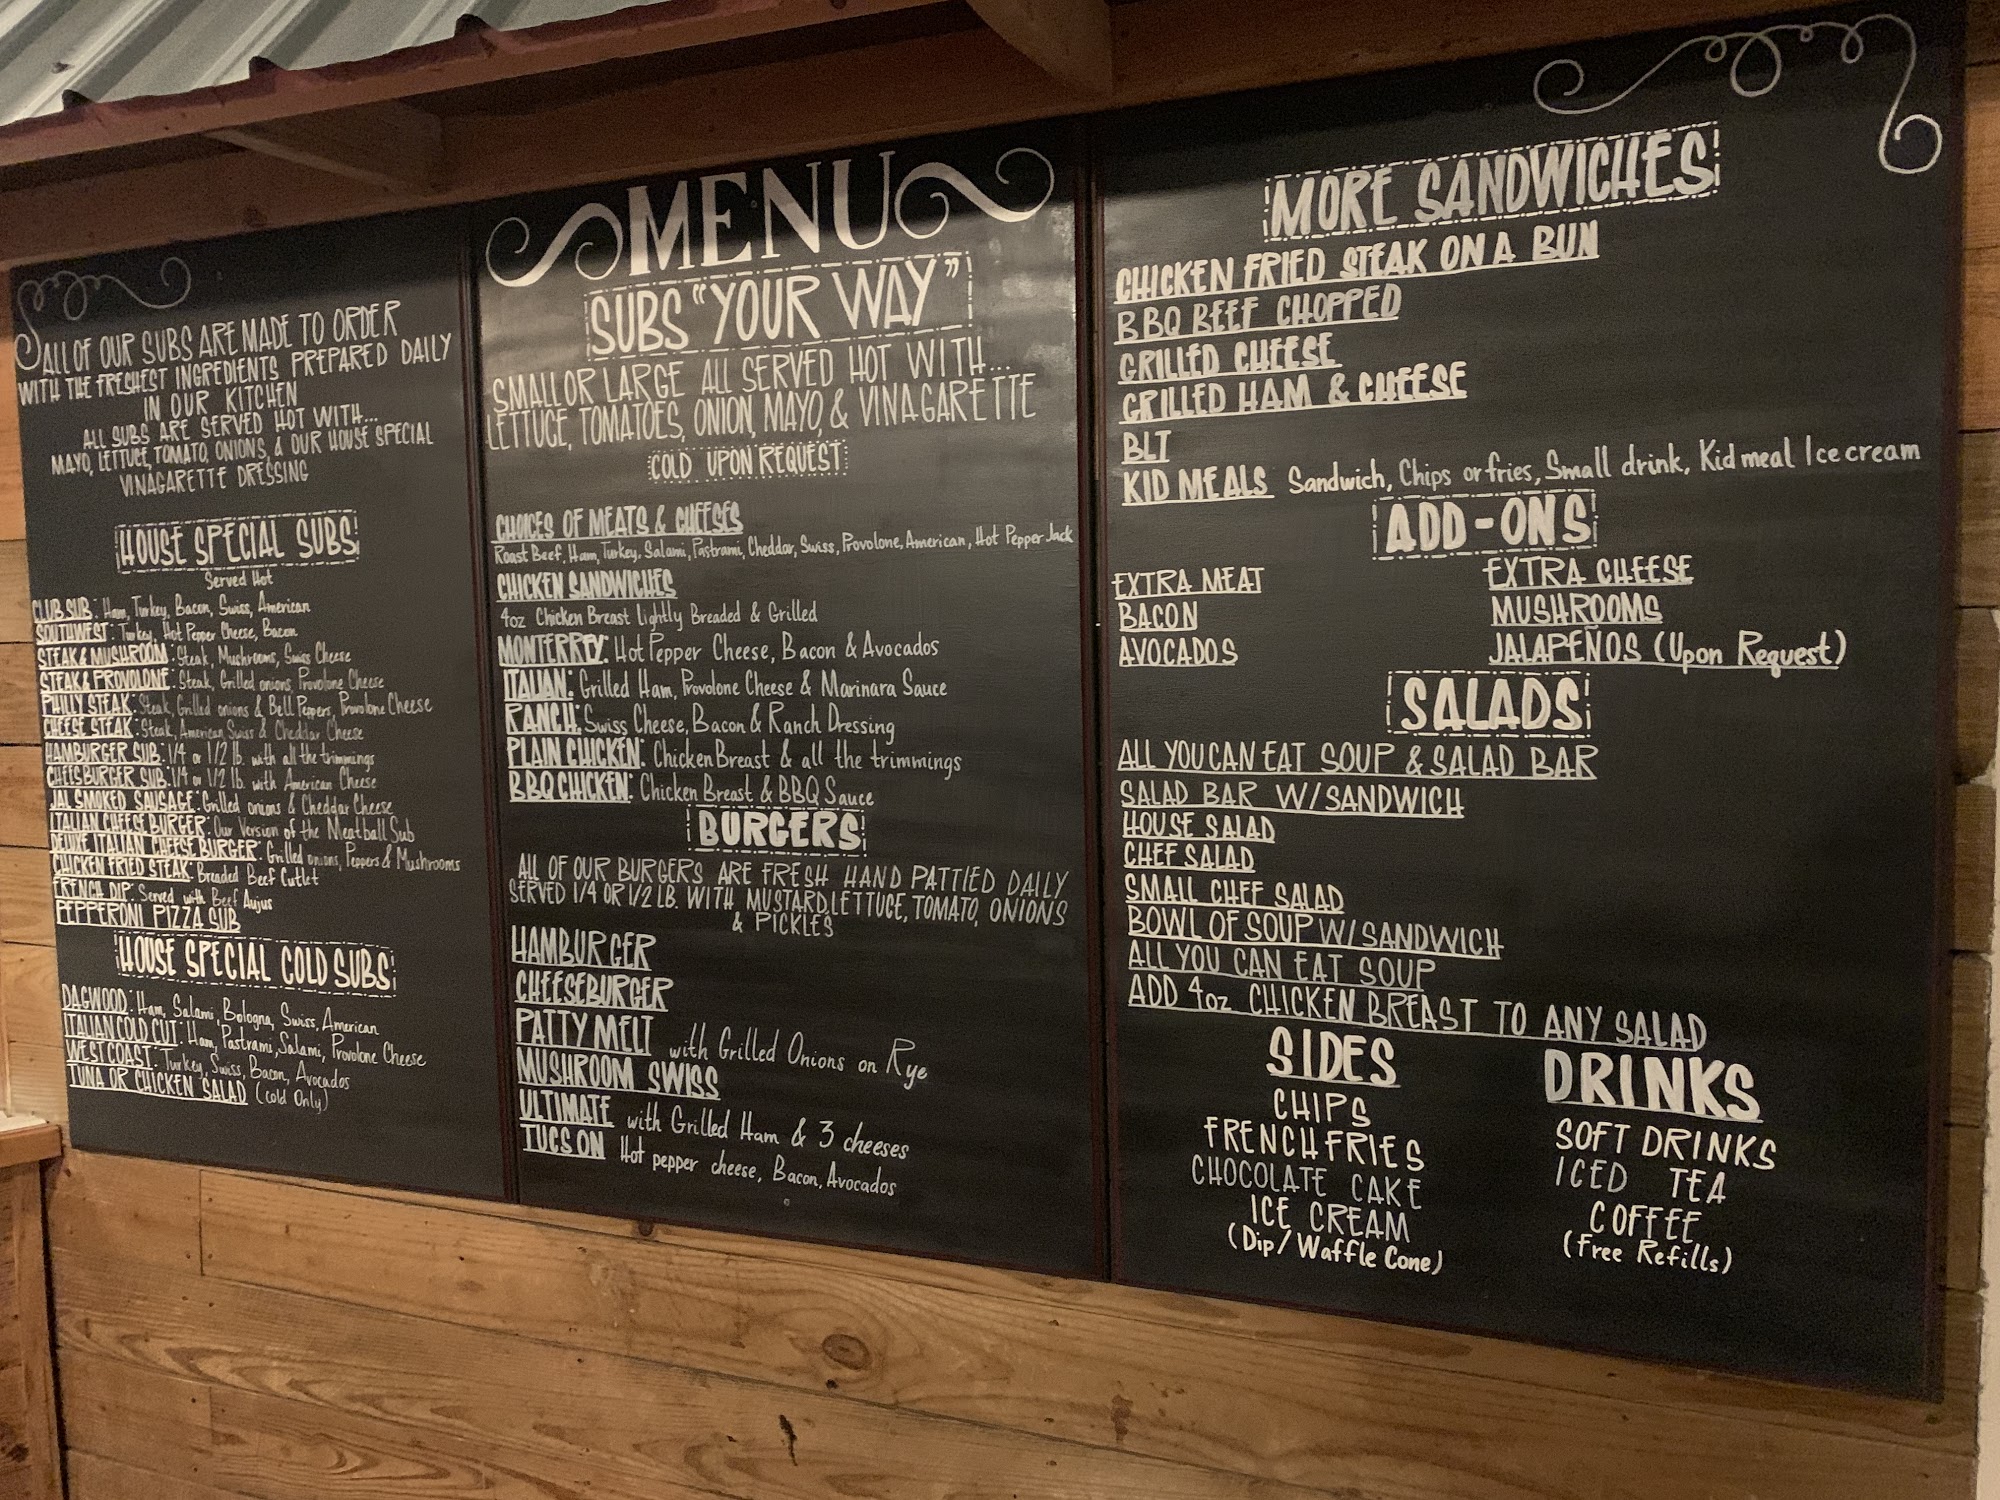 ALL OF OUR SUBS ARE MADE TO ORDER
WITH THE FRESHEST INGREDIENTS PREPARED DAILY
IN OUR KITCHEN
ALL SUBS ARE SERVED HOT WITH...
MAYO, LETTUCE, TOMATO, ONIONS, & OUR HOUSE SPECIAL
VINAGARETTE DRESSING
HOUSE SPECIAL SUBS
Served Hot
CLUB SUB: Ham, Turkey, Bacon, Swiss, American
SOUTHWEST: Turkey, Hot Pepper Cheese, Bacon
STEAK & MUSHROOM: Steak, Mushrooms, Swiss Cheese
STEAK & PROVOLONE: Steak, Grilled onions, Provolone Cheese
PHILLY STEAK: Steak, Grilled onions & Bell Peppers, Provolone Cheese
CHEESE STEAK: Steak, American, Swiss & Cheddar Cheese
HAMBURGER SUB: 1/4 or 1/2 lb. with all the trimmings
CHEESBURGER SUB: 1/4 or 1/2 lb. with American Cheese
JAL SMOKED SAUSAGE: Grilled onions & Cheddar Cheese
ITALIAN CHEESE BURGER: Our Version of the Meatball Sub
DELUXE ITALIAN CHEESE BURGER: Grilled onions, Peppers & Mushrooms
CHICKEN FRIED STEAK: Breaded Beef Cutlet
FRENCH DIP: Served with Beef Aujus
PEPPERONI PIZZA SUB
HOUSE SPECIAL COLD SUBS
DAGWOOD: Ham, Salami, Bologna, Swiss, American
ITALIAN COLD CUT: Ham, Pastrami, Salami, Provolone Cheese
WEST COAST: Turkey, Swiss, Bacon, Avocados
TUNA OR CHICKEN SALAD (cold Only)
MENU
SUBS "YOUR WAY"
SMALL OR LARGE ALL SERVED HOT WITH...
LETTUCE, TOMATOES, ONION, MAYO, & VINAGARETTE
COLD UPON REQUEST
CHOICES OF MEATS & CHEESES
Roast Beef, Ham, Turkey, Salami, Pastrami, Cheddar, Swiss, Provolone, American, Hot Pepper Jack
CHICKEN SANDWICHES
4oz Chicken Breast Lightly Breaded & Grilled
MONTERREY: Hot Pepper Cheese, Bacon & Avocados
ITALIAN: Grilled Ham, Provolone Cheese & Marinara Sauce
RANCH: Swiss Cheese, Bacon & Ranch Dressing
PLAIN CHICKEN: Chicken Breast & all the trimmings
BBQ CHICKEN: Chicken Breast & BBQ Sauce
BURGERS
ALL OF OUR BURGERS ARE FRESH HAND PATTIED DAILY
SERVED 1/4 OR 1/2 LB. WITH MUSTARD, LETTUCE, TOMATO, ONIONS
& PICKLES
HAMBURGER
CHEESEBURGER
PATTY MELT with Grilled Onions on Rye
MUSHROOM SWISS
ULTIMATE with Grilled Ham & 3 cheeses
TUCSON Hot pepper cheese, Bacon, Avocados
MORE SANDWICHES
CHICKEN FRIED STEAK ON A BUN
BBQ BEEF CHOPPED
GRILLED CHEESE
GRILLED HAM & CHEESE
BLT
KID MEALS Sandwich, Chips or fries, Small drink, Kid meal Ice cream
ADD-ONS
EXTRA MEAT
BACON
AVOCADOS
EXTRA CHEESE
MUSHROOMS
JALAPEÑOS (Upon Request)
SALADS
ALL YOU CAN EAT SOUP & SALAD BAR
SALAD BAR W/SANDWICH
HOUSE SALAD
CHEF SALAD
SMALL CHEF SALAD
BOWL OF SOUP W/SANDWICH
ALL YOU CAN EAT SOUP
ADD 4oz CHICKEN BREAST TO ANY SALAD
SIDES
CHIPS
FRENCH FRIES
CHOCOLATE CAKE
ICE CREAM
(Dip/Waffle Cone)
DRINKS
SOFT DRINKS
ICED TEA
COFFEE
(Free Refills)